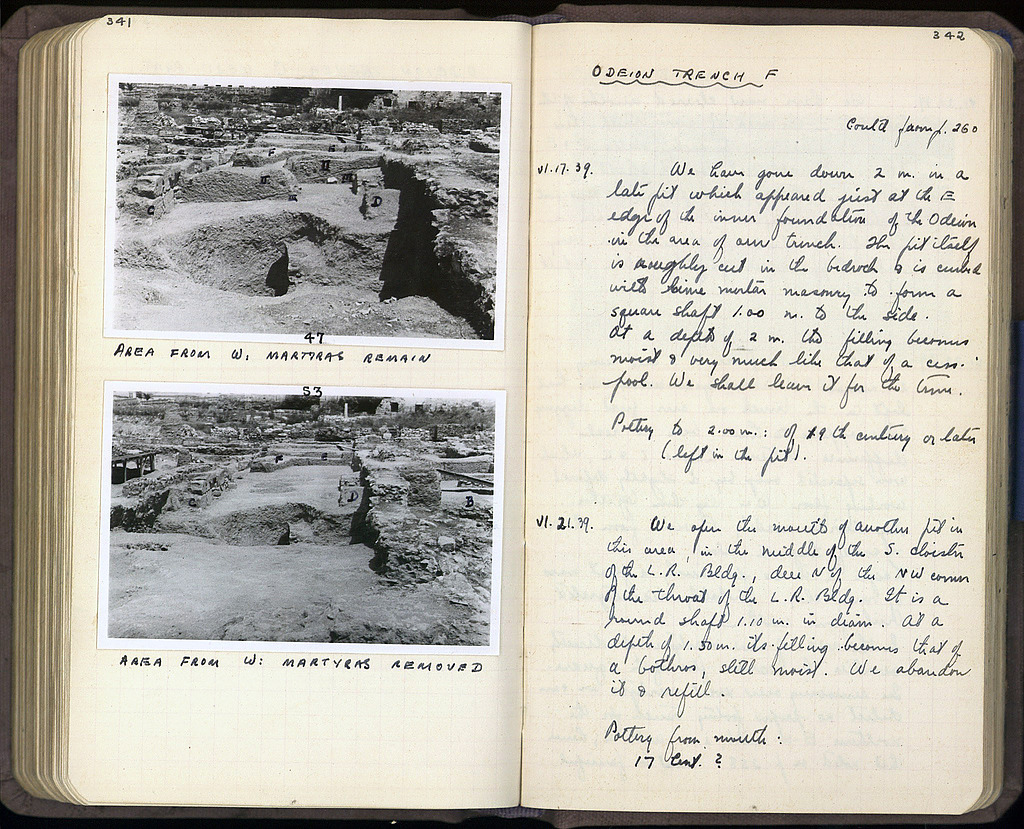 341
47
AREA FROM W: MARTYRAS REMAIN
53
AREA FROM W: MARTYRAS REMOVED
342
ODEION TRENCH F
Cont'd from p. 260
VI.17.39. We have gone down 2 m. in a
late pit which appeared just at the E
edge of the inner foundation of the Odeion
in the area of our trench. The pit itself
is roughly cut in the bedrock & is curbed
with lime mortar masonry to form a
square shaft 1.00 m. to the side.
At a depth of 2 m. the filling becomes
moist & very much like that of a cess-
pool. We shall leave it for the time.
Pottery to 2.00 m.: of 19th century or later
(left in the pit).
VI.21.39. We open the mouth of another pit in
this area, in the middle of the S. cloister
of the L.R. Bldg., due N of the NW corner
of the throat of the L.R. Bldg. It is a
round shaft 1.10 m. in diam. At a
depth of 1.50 m. its filling becomes that of
a bothros, still moist. We abandon
it & refill.
Pottery from mouth:
17 Cent. ?